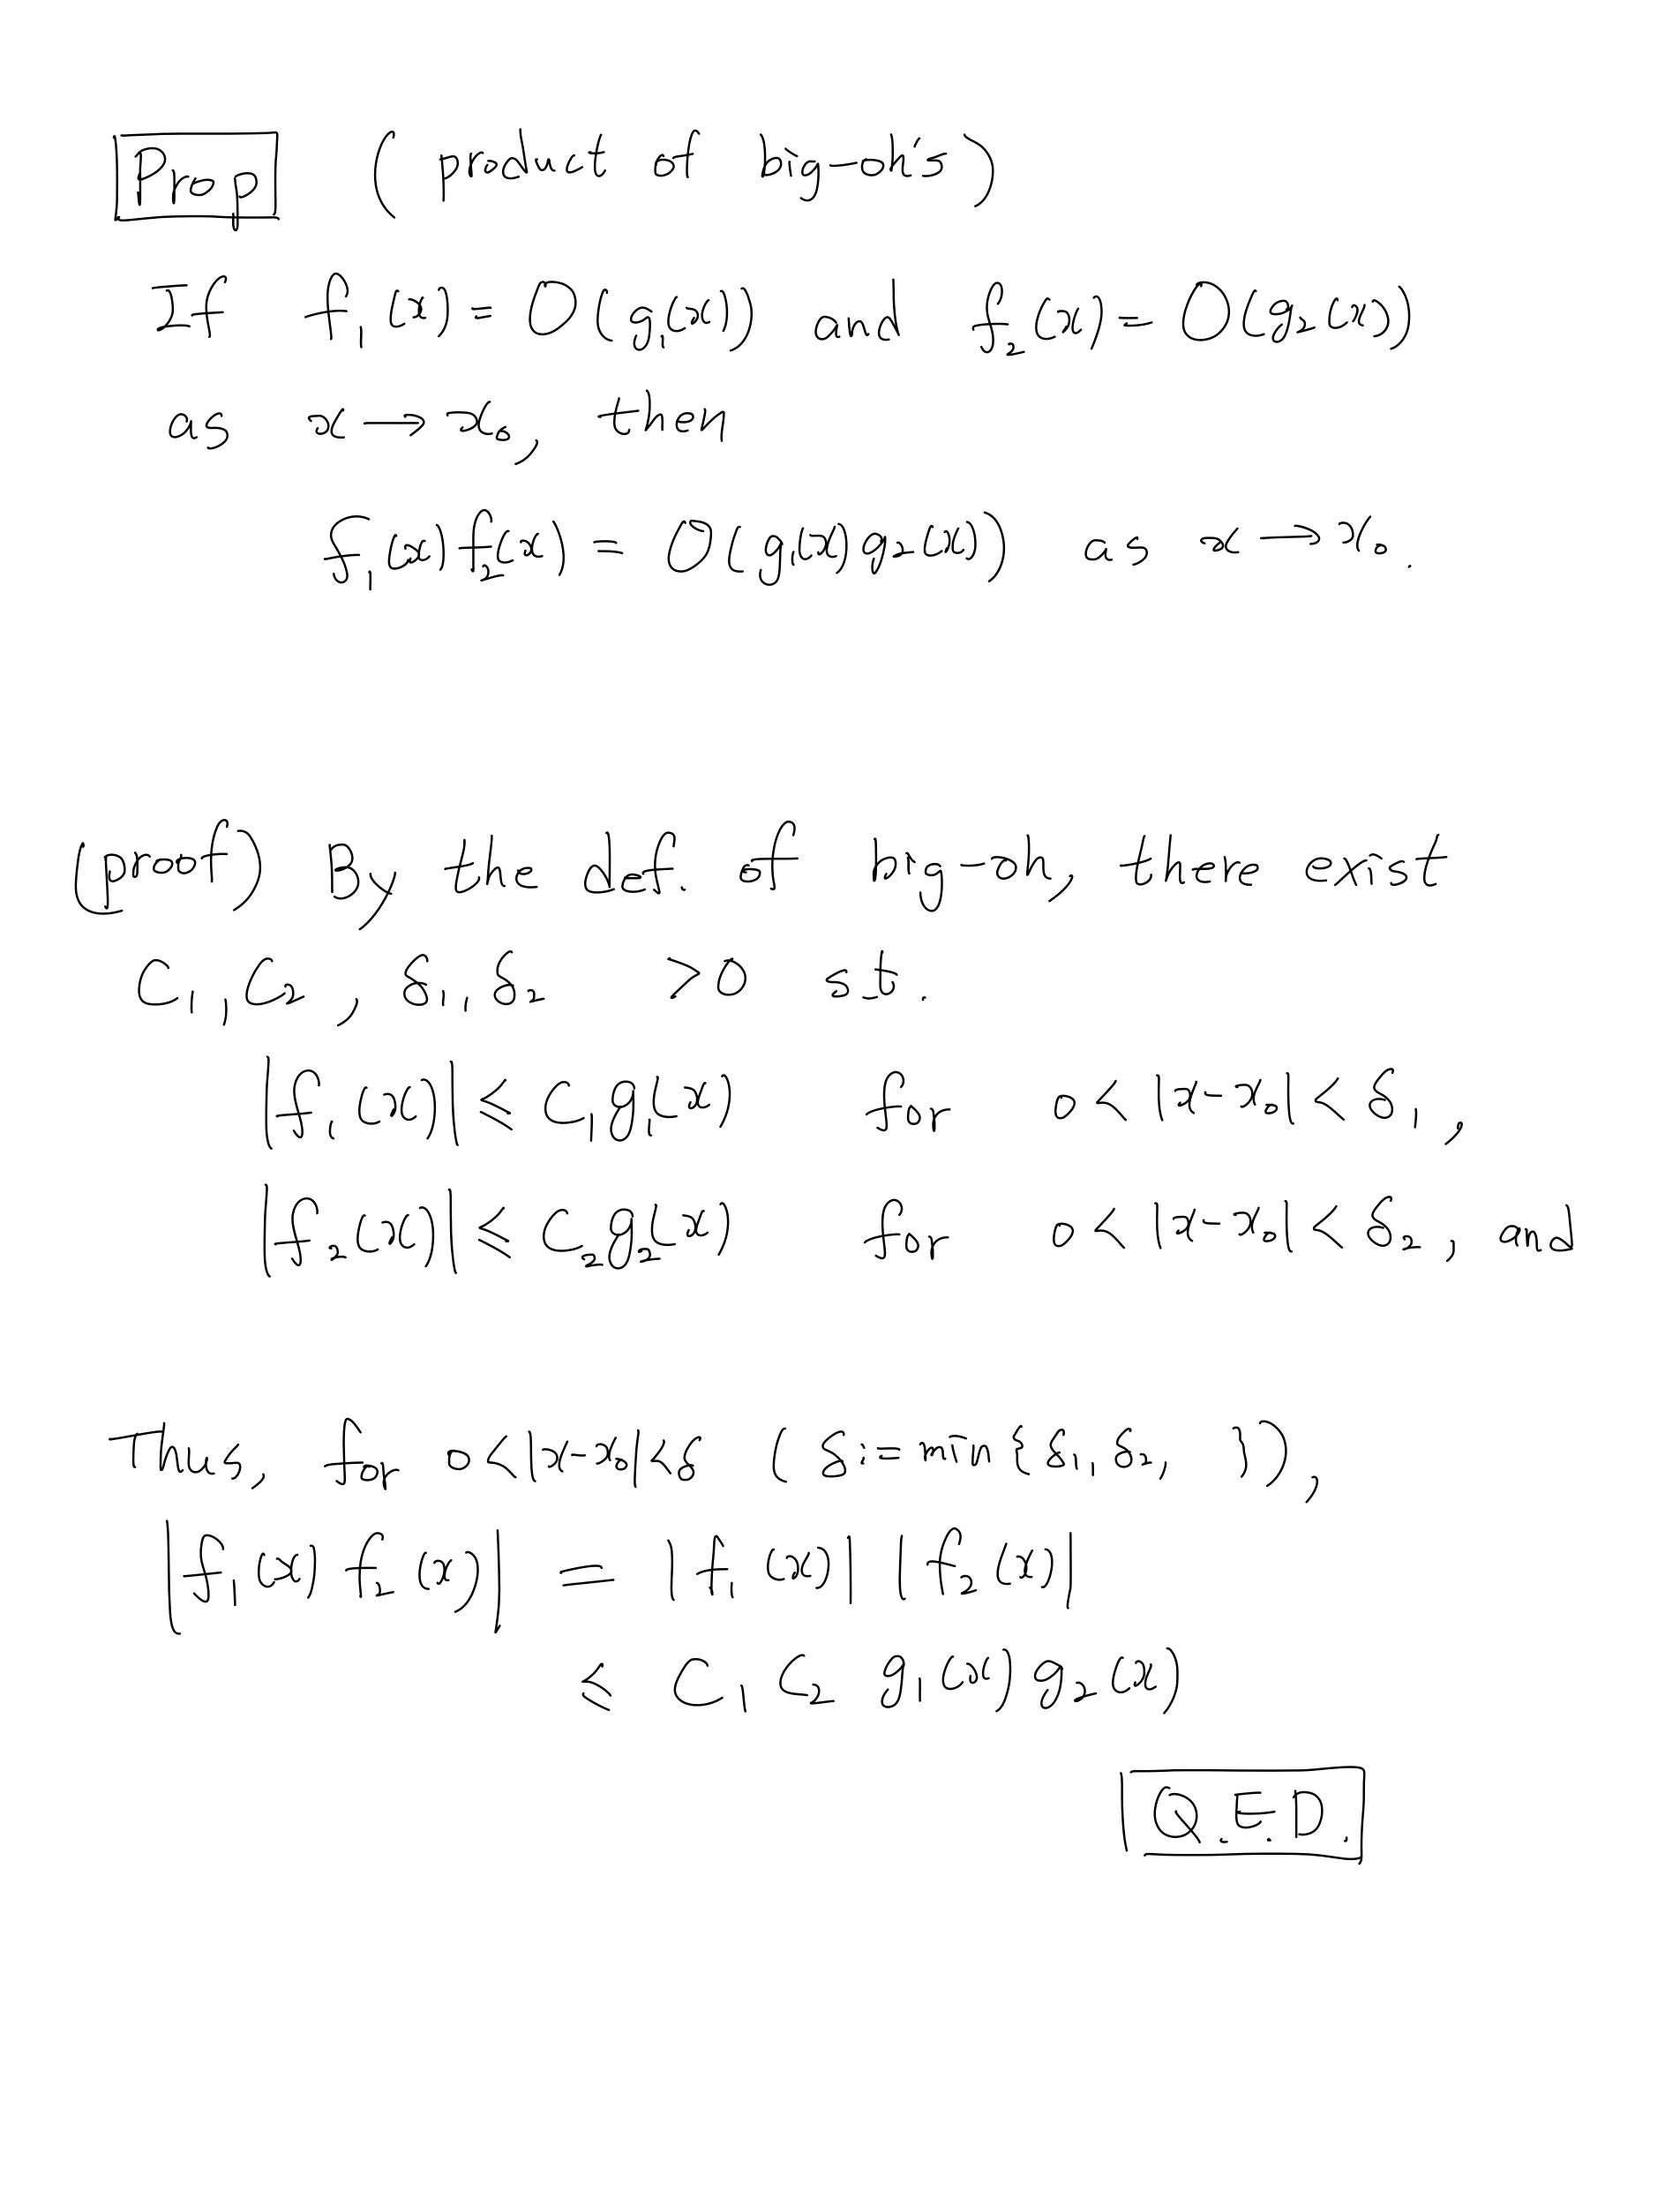 Prop (product of big-oh's)
If f₁(x) = O(g₁(x)) and f₂(x) = O(g₂(x))
as x → x₀, then
f₁(x)f₂(x) = O(g₁(x)g₂(x)) as x → x₀.
(proof) By the def. of big-oh, there exist
C₁, C₂, δ₁, δ₂ >0 s.t.
|f₁(x)| ≤ C₁g₁(x) for 0 < |x-x₀| < δ₁,
|f₂(x)| ≤ C₂g₂(x) for 0 < |x-x₀| < δ₂, and
Thus, for 0<|x-x₀|<δ (δ:=min{δ₁,δ₂, }),
|f₁(x) f₂(x)| = |f₁(x)| |f₂(x)|
≤ C₁ C₂ g₁(x) g₂(x)
Q.E.D.